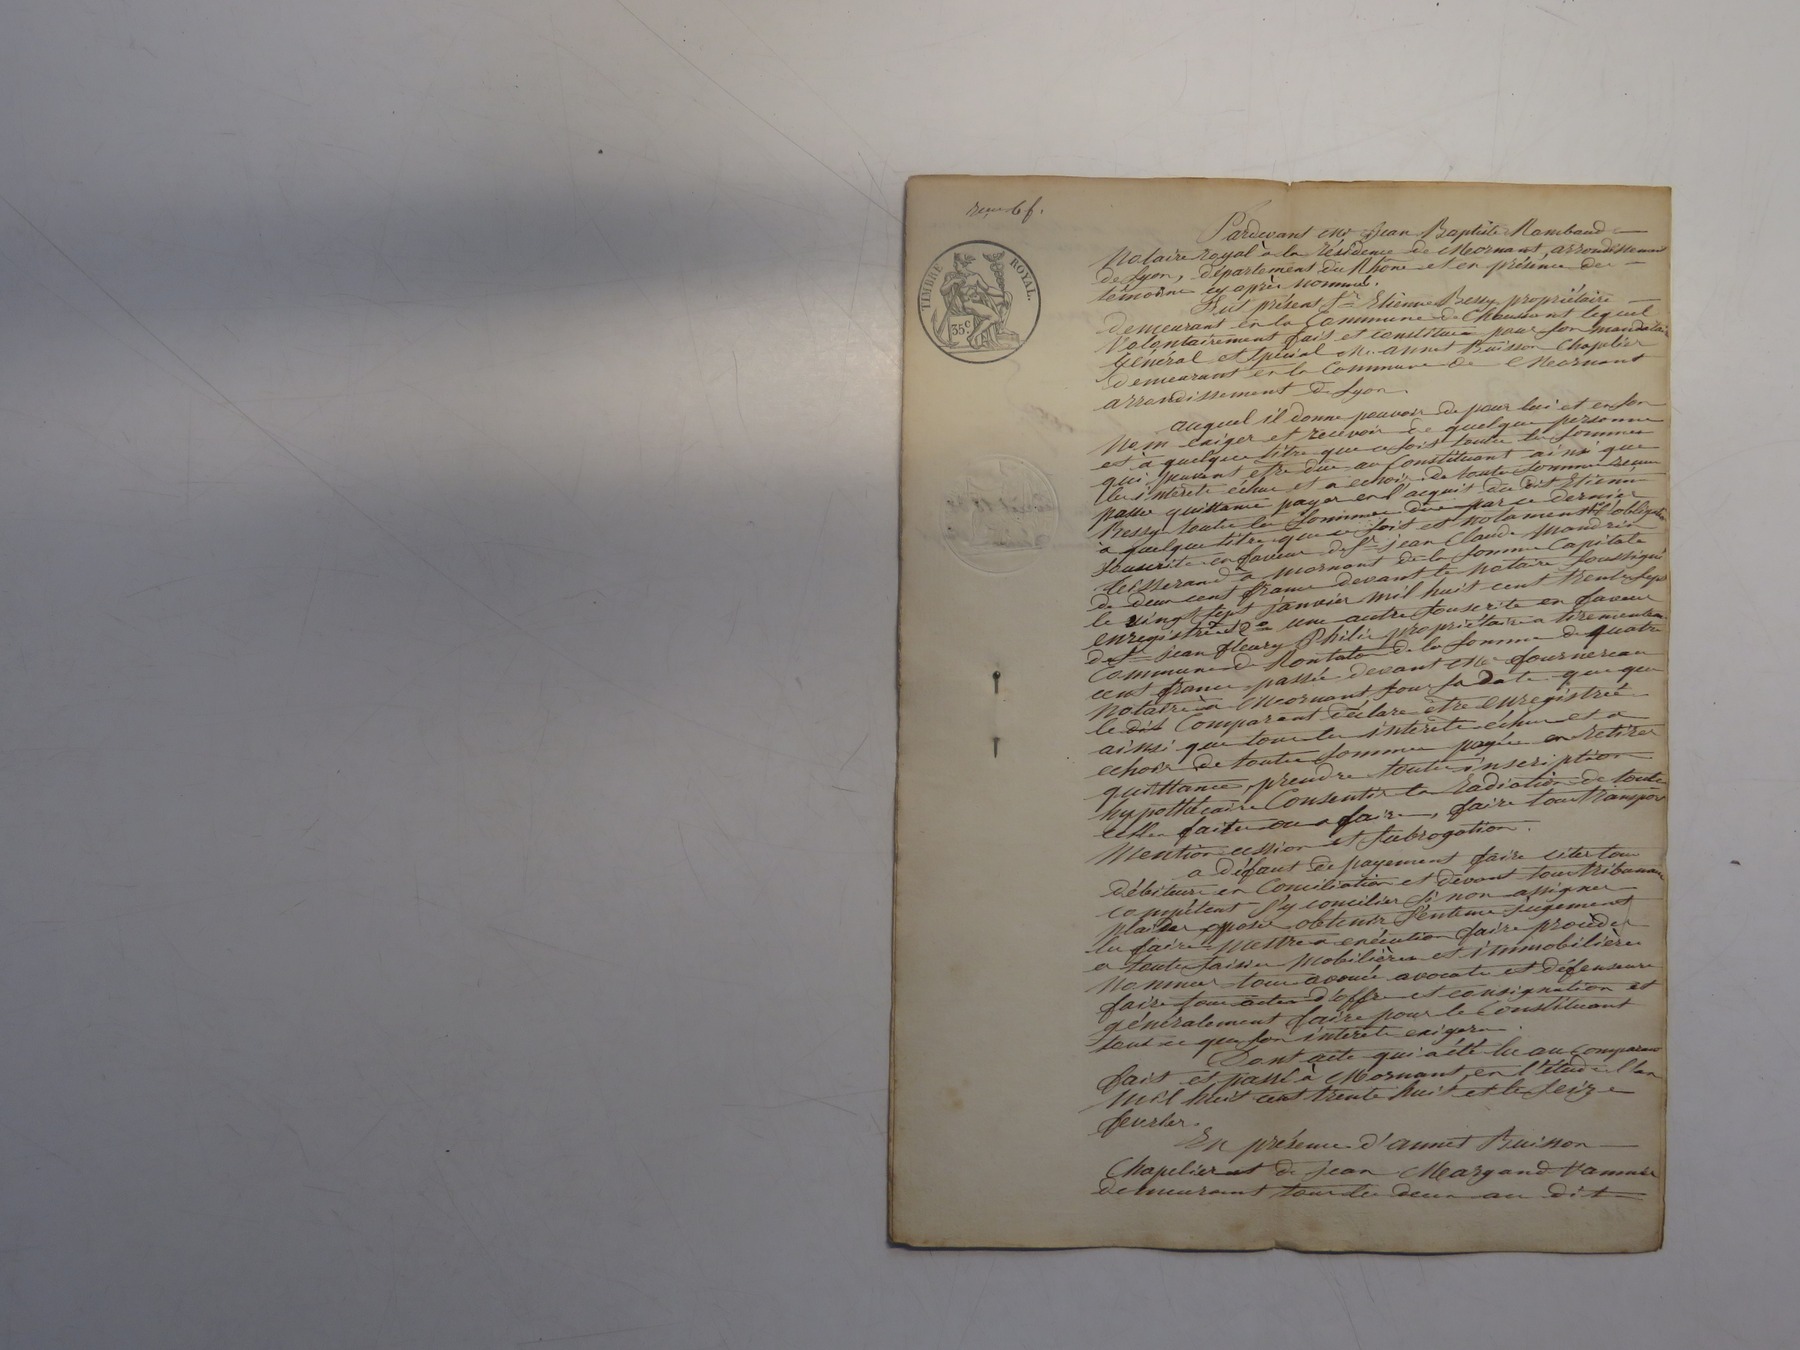 reçu 6 f.
TIMBRE ROYAL.
35 c
Pardevant Me Jean Baptiste Rambaud
Notaire royal à la résidence de Mornant, arrondissement
de Lyon, département du Rhône et en présence des
témoins cy après nommés.
Fut présent Sr Etienne Bessy propriétaire
demeurant en la Commune de Chaussant lequel
Volontairement fait et constitue pour son mandataire
Général et spécial Mr annet Buisson Chapelier
demeurant en la Commune de Mornant
arrondissement de Lyon.
auquel il donne pouvoir de pour lui et en son
Nom exiger et recevoir de quelque personne
et à quelque titre que ce soit toutes les sommes
qui peuvent etre dues au Constituant ainsi que
les intérêts échus et a echoir de toute somme reçue
passer quittance payer en l'acquit du dit Etienne
Bessy toutes les sommes dues par ce dernier
a quelque titre que ce soit et notament l'obligation
Souscrite en faveur de Sr jean Claude Mandrin
tisserand à Mornant de la somme Capitale
de deux cent francs devant le notaire soussigné
le vingt sept janvier mil huit cent trente sept
enregistrée 2° une autre souscrite en faveur
de Sr jean fleury Philis propriétaire a
Commune de Rontalon de la somme de quatre
cent francs passée devant Me fournereau
Notaire à Mornant sous sa date que que
le dit Comparant déclare être enregistrée
ainsi que tous les intérêts échus et a
echoir de toutes sommes payées en retirer
quittance, prendre toutes inscription
hypothécaire Consentir la Radiation de toutes
celles faites ou a faire, faire tous transport
Mention cession et subrogation.
a défaut de payement faire citer tous
débiteurs en Conciliation et devant tous tribunaux
compétent s'y concilier si non assigner
plaider oposer obtenir sentence jugement
les faire mettre a exécution faire procéder
a toutes saisies Mobilières et immobilières
Nommer tous avoués avocats et défenseurs
faire tous actes d'offre et consignation et
généralement faire pour le Constituant
tout ce que son intérêts exigera.
Dont acte qui a été lu au Comparant
fait et passé à Mornant en l'étude l'an
Mil huit cent trente huit et le seize
fevrier.
En présence d'annet Buisson
Chapelier et de jean Margand Vannier
demeurant tous les deux au dit